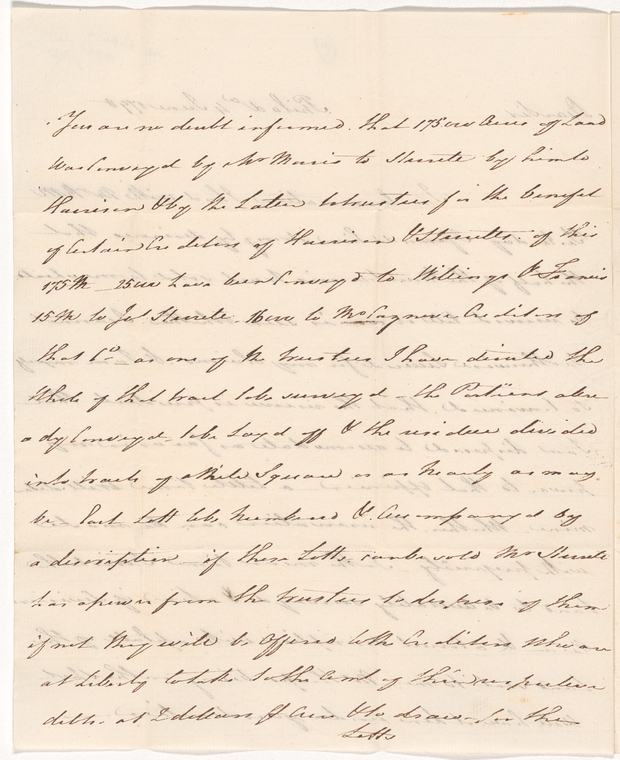 You are no doubt informed that 175000 Acres of Land
was Conveyd by Mr Morris to Sterrete by him to
Harrison & by the Latter to trustees for the benefit
of Certain Creditors of Harrison & Sterrete. of this
175Th 25000 have been Conveyd to Willings & Francis
15Th to Jos Sterrete. 16000 to Creditors of
that Co as one of the trustees I have directed the
Whole of that tract to be surveyd the Portions alre
ady Conveyd to be Layd off & the residue divided
into tracts of a Mile Square or as Nearly as may
be Each Lott to be Numbered & Accompanyd by
a description if these Lotts can be sold Mr Sterrete
has a power from the trustees to dispose of them
if not they will be Offered to the Creditors who are
at Liberty to take to the amt of their respective
debts, at 2 dollars Acre & to draw for the
Lotts